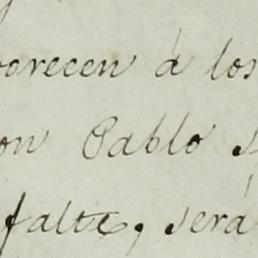 orecen á los
on Pablo s
falte, será